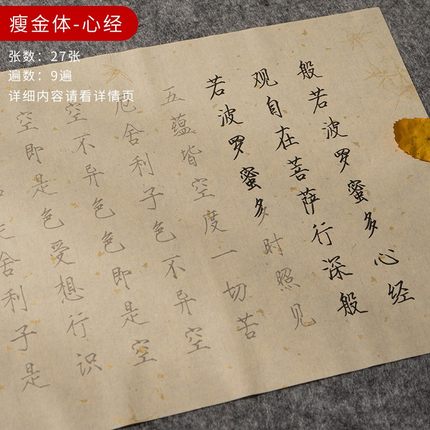 瘦金体-心经
张数：27张
遍数：9遍
详细内容请看详情页
般若波罗蜜多心经
观自在菩萨行深般
若波罗蜜多时照见
五蕴皆空度一切苦
厄舍利子色不异空
空不异色色即是空
空即是色受想行识
舍利子是